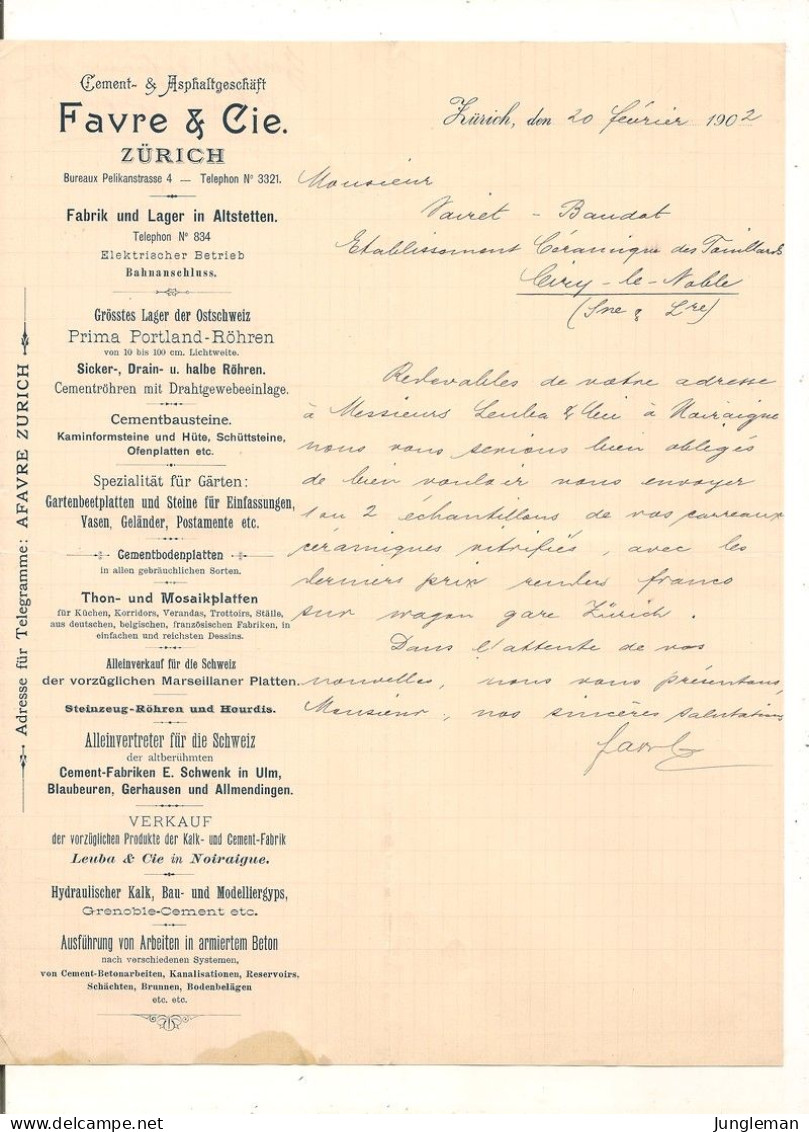 Cement- & Asphaltgeschäft
Favre & Cie.
ZÜRICH
Bureaux Pelikanstrasse 4 — Telephon Nº 3321.
Fabrik und Lager in Altstetten.
Telephon Nº 834
Elektrischer Betrieb
Bahnanschluss.
Grösstes Lager der Ostschweiz
Prima Portland-Röhren
von 10 bis 100 cm. Lichtweite.
Sicker-, Drain- u. halbe Röhren.
Cementröhren mit Drahtgewebeeinlage.
Cementbausteine.
Kaminformsteine und Hüte, Schüttsteine,
Ofenplatten etc.
Spezialität für Gärten:
Gartenbeetplatten und Steine für Einfassungen,
Vasen, Geländer, Postamente etc.
Cementbodenplatten
in allen gebräuchlichen Sorten.
Thon- und Mosaikplatten
für Küchen, Korridors, Verandas, Trottoirs, Ställe,
aus deutschen, belgischen, französischen Fabriken, in
einfachen und reichsten Dessins.
Alleinverkauf für die Schweiz
der vorzüglichen Marseillaner Platten.
Steinzeug-Röhren und Hourdis.
Alleinvertreter für die Schweiz
der altberühmten
Cement-Fabriken E. Schwenk in Ulm,
Blaubeuren, Gerhausen und Allmendingen.
VERKAUF
der vorzüglichen Produkte der Kalk- und Cement-Fabrik
Leuba & Cie in Noiraigue.
Hydraulischer Kalk, Bau- und Modelliergyps,
Grenoble-Cement etc.
Ausführung von Arbeiten in armiertem Beton
nach verschiedenen Systemen,
von Cement-Betonarbeiten, Kanalisationen, Reservoirs,
Schächten, Brunnen, Bodenbelägen
etc. etc.
Adresse für Telegramme: AFAVRE ZÜRICH
Zürich, den 20 février 1902
Monsieur
Vairet - Baudot
Etablissement Céramique des Touillards
Ciry-le-Noble
(Sne & Lre)
Redevables de votre adresse
à Messieurs Leuba & Cie à Noiraigue
nous vous serions bien obligés
de bien vouloir nous envoyer
1 ou 2 échantillons de vos carreaux
céramiques vitrifiés, avec les
derniers prix rendus franco
sur wagon gare Zürich.
Dans l'attente de vos
nouvelles, nous vous présentons,
Monsieur, nos sincères salutations
delcampe.net
Jungleman